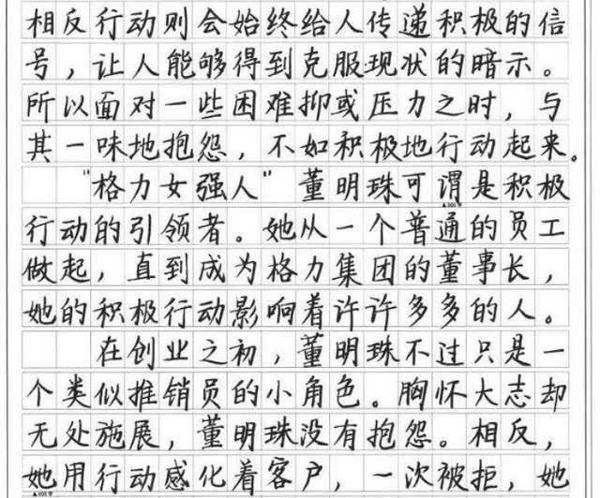 相反行动则会始终给人传递积极的信
号，让人能够得到克服现状的暗示。
所以面对一些困难抑或压力之时，与
其一味地抱怨，不如积极地行动起来。
“格力女强人”董明珠可谓是积极
行动的引领者。她从一个普通的员工
做起，直到成为格力集团的董事长，
她的积极行动影响着许许多多的人。
在创业之初，董明珠不过只是一
个类似推销员的小角色。胸怀大志却
无处施展，董明珠没有抱怨。相反，
她用行动感化着客户，一次被拒，她